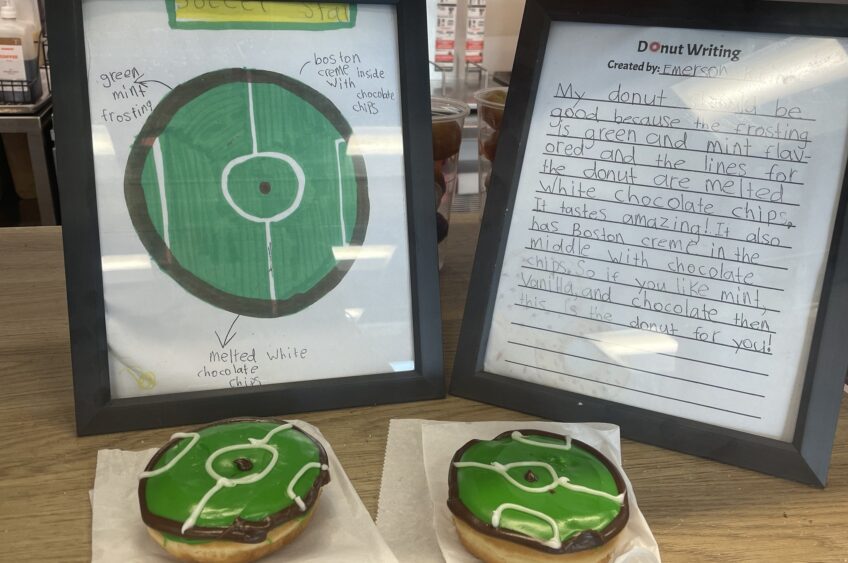 Soccer Star
green
mint
frosting
boston
creme inside
with chocolate
chips
melted white
chocolate
chips
Donut Writing
Created by: Emerson
My donut should be
good because the frosting
is green and mint flav-
ored and the lines for
the donut are melted
white chocolate chips.
It tastes amazing! It also
has Boston creme in the
middle with chocolate
chips. So if you like mint,
vanilla, and chocolate then
this is the donut for you!